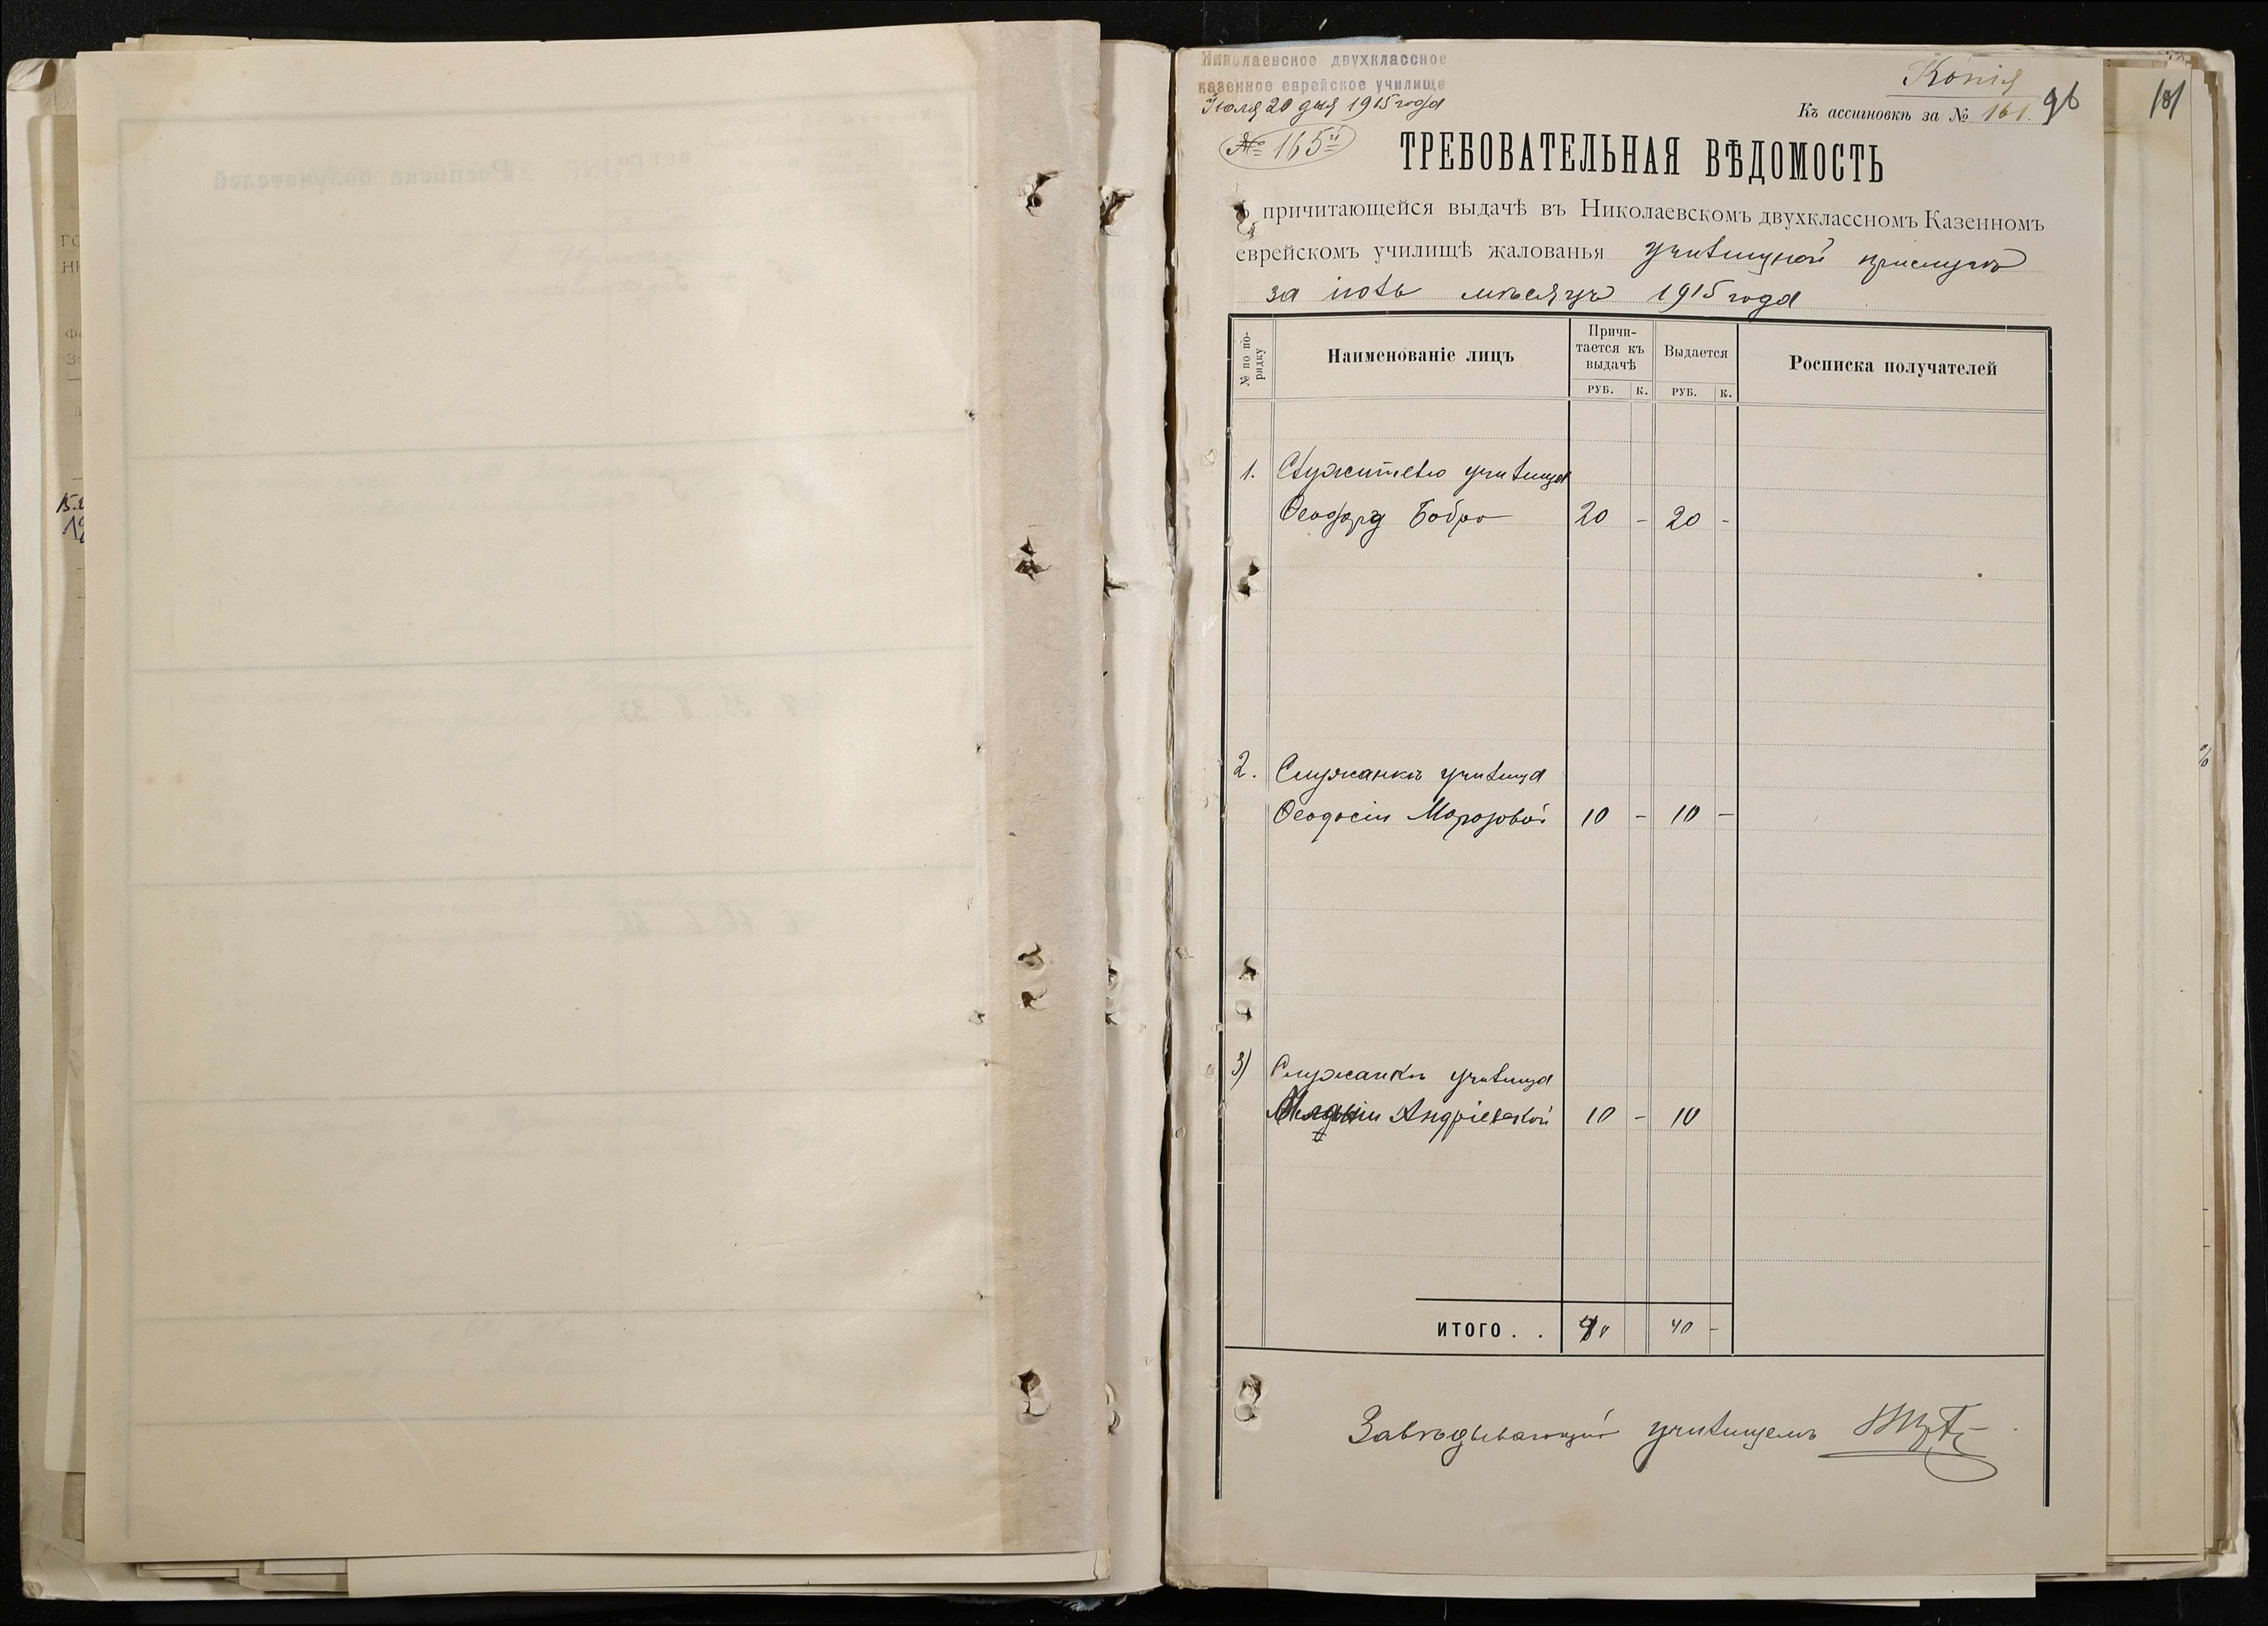 Николаевское двухклассное
казенное еврейское училище
Июля 20 дня 1915 года
№ 165й
Копія
Къ ассигновкѣ за № 161.
96
181
ТРЕБОВАТЕЛЬНАЯ ВѢДОМОСТЬ
причитающейся выдачѣ въ Николаевскомъ двухклассномъ Казенномъ
еврейскомъ училищѣ жалованья училищной прислугѣ
за іюль мѣсяцъ 1915 года
№ по порядку
Наименованіе лицъ
Причи-
тается къ
выдачѣ
Выдается
Росписка получателей
РУБ. К. РУБ. К.
1. Служителю училища
Ѳеодору Бобро 20 - 20 -
2. Служанкѣ училища
Ѳеодосіи Морозовой 10 - 10 -
3) Служанкѣ училища
Андріевской 10 - 10
ИТОГО . . 40 40 -
Завѣдывающій училищемъ